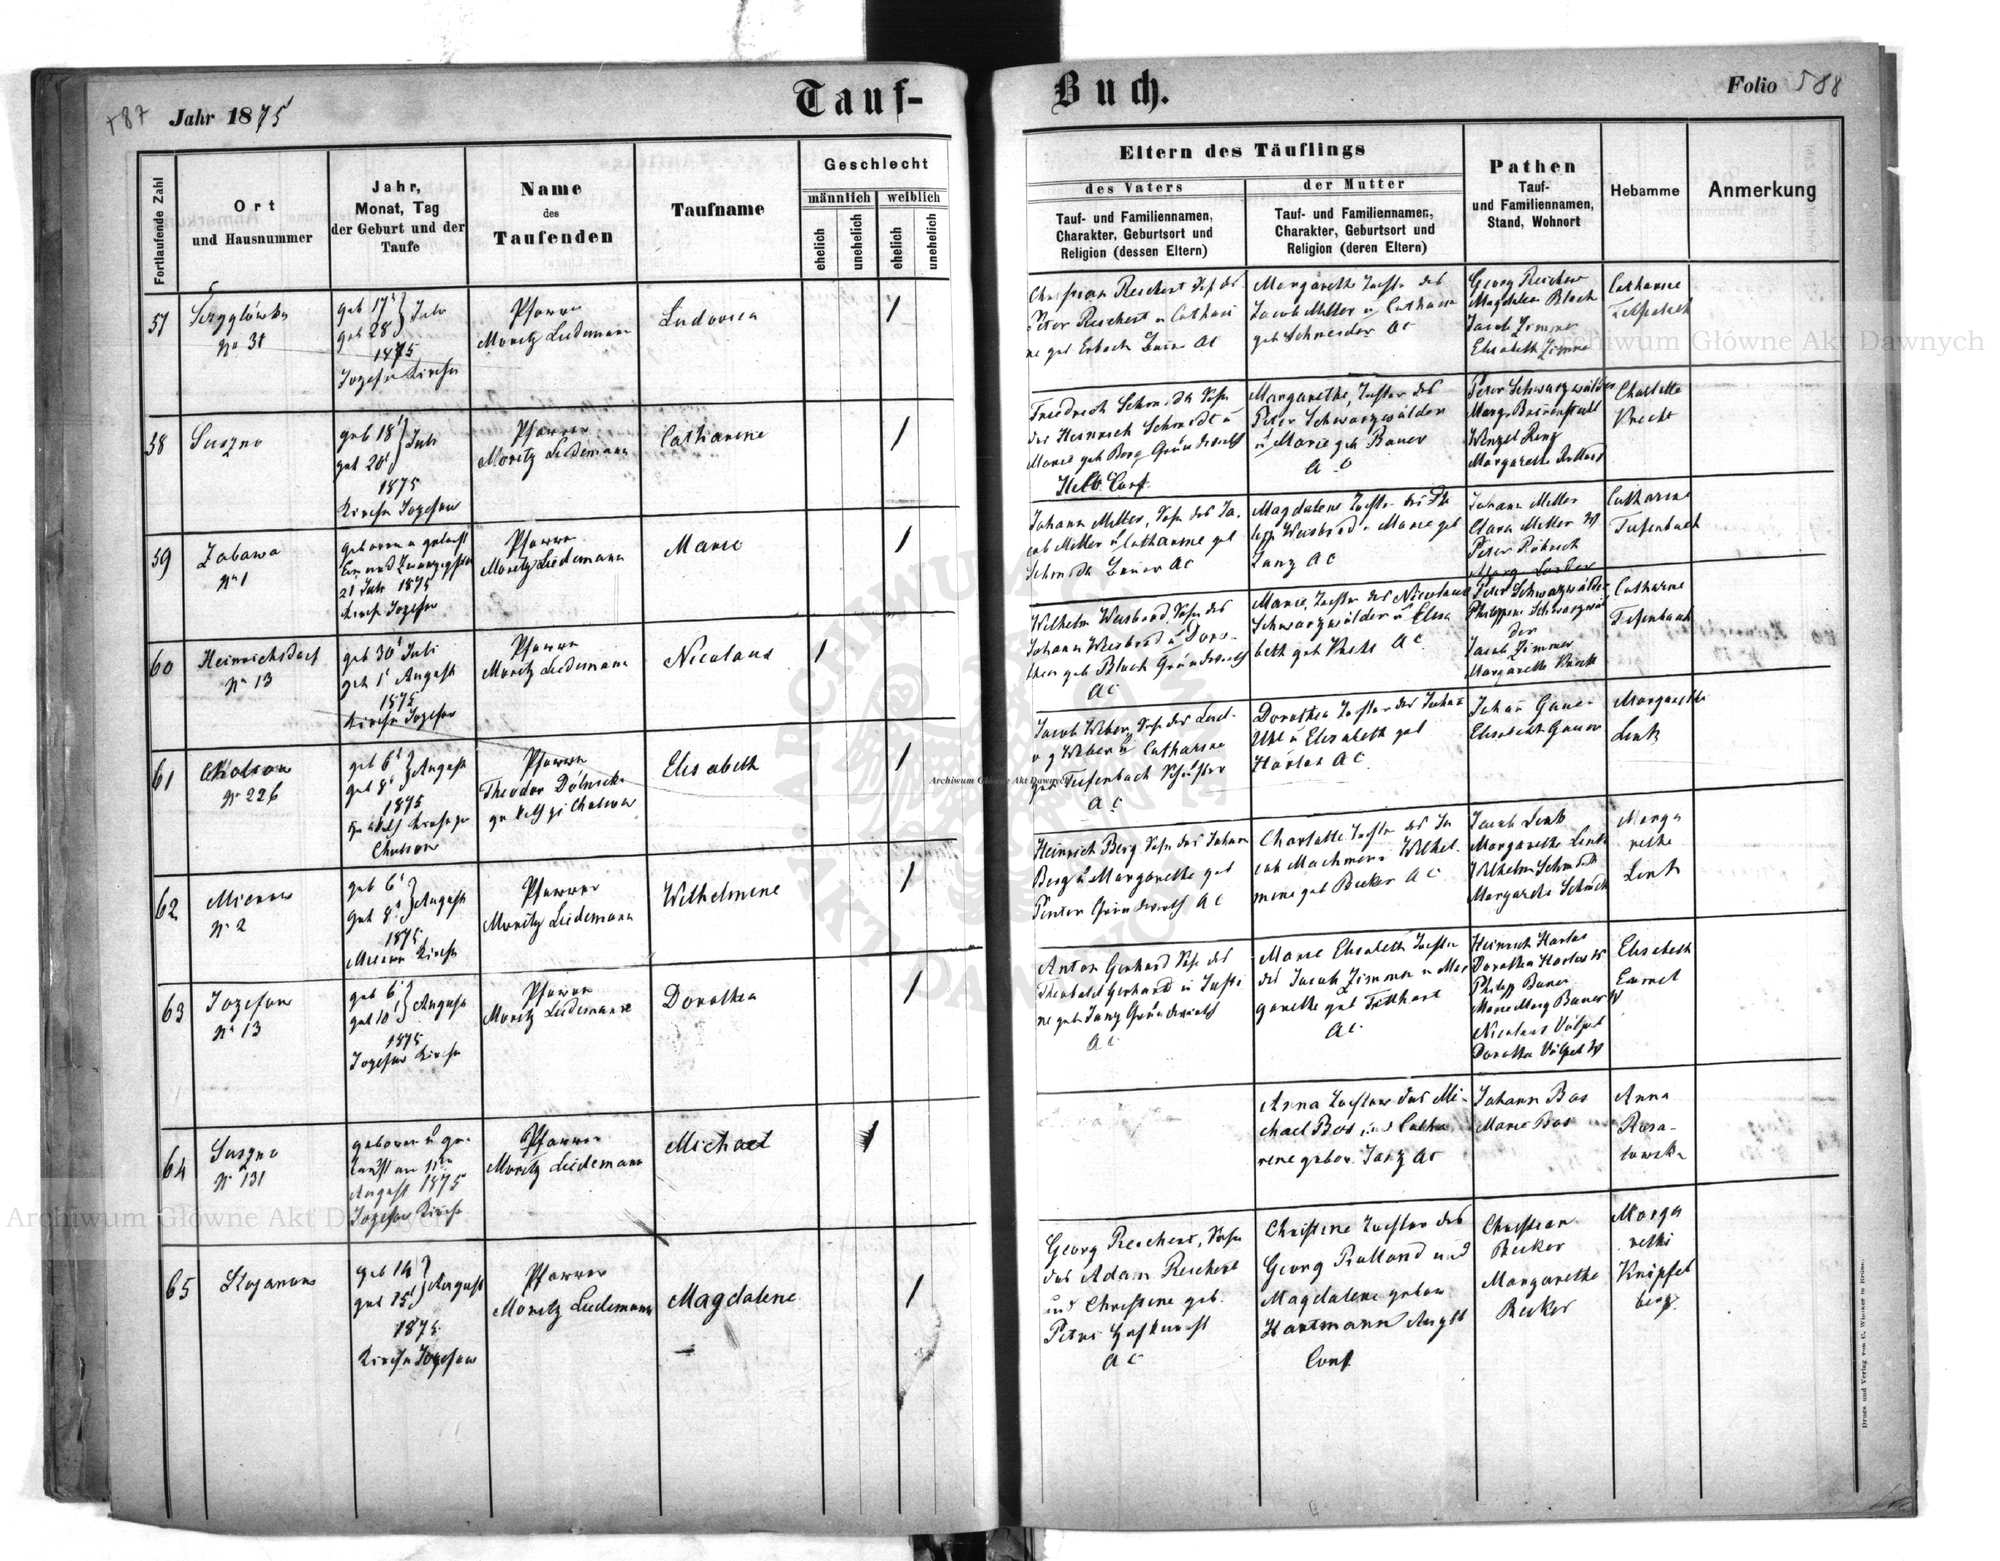 587
Jahr 1875
Tauf-
Buch.
Folio 588
Fortlaufende Zahl
Ort
und Hausnummer
Jahr,
Monat, Tag
der Geburt und der
Taufe
Name
des
Taufenden
Taufname
Geschlecht
männlich
weiblich
ehelich
unehelich
ehelich
unehelich
Eltern des Täuflings
des Vaters
Tauf- und Familiennamen,
Charakter, Geburtsort und
Religion (dessen Eltern)
der Mutter
Tauf- und Familiennamen,
Charakter, Geburtsort und
Religion (deren Eltern)
Pathen
Tauf-
und Familiennamen,
Stand, Wohnort
Hebamme
Anmerkung
57
No 31
geb 17
get 28 } Juli
1875
Pfarrer
Moritz Leidemann
Ludovica
Christian Reichert Sohn des
Peter Reichert u Cathari
ne geb Erbach Bauer AC
Margarethe Tochter des
Jacob Miller u Catharine
geb Schneider AC
Georg Reichert
Magdalena Bloch
Jacob Zimmer
Elisabeth Zimmer
Catharine
58
Suszno
geb 18
get 20 } Juli
1875
Kirche Jozefow
Pfarrer
Moritz Leidemann
Catharine
Friedrich Schmidt Sohn
des Heinrich Schmidt u
Marie geb Berg Grundwirth
Helv. Conf.
Margarethe, Tochter des
Peter Schwarzwälder
u Marie geb Bauer
A C
Peter Schwarzwälder
Wenzel
Margarethe Rolland
Charlotte
Knecht
59
Zabawa
Nr 1
geboren u getauft
Ein und Zwanzigsten
21 Juli 1875
Kirche Jozefow
Pfarrer
Moritz Leidemann
Marie
Johann Miller, Sohn des Ja
cob Miller u Catharine geb
Schmidt Bauer AC
Magdalena Tochter des Phi
lipp Weisbrod u Marie geb
Janz AC
Johann Miller
Clara Miller
Peter
Catharine
Tiefenbach
60
Heinrichsdorf
Nr 13
geb 30 Juli
get 1 August
1875
Kirche Jozefow
Pfarrer
Moritz Leidemann
Nicolaus
Wilhelm Weisbrod, Sohn des
Johann Weisbrod u Doro-
thea geb Bloch Grundwirth
AC
Marie, Tochter des Nicolaus
Schwarzwälder u Elisa
beth geb AC
Peter Schwarzwälder
Philippine Schwarzwäl
der
Jacob Zimmer
Margarethe
Catharine
Tiefenbach
61
Cholojow
Nr 226
geb 6
get 8 } August
1875
Pfarrer
Theodor
Elisabeth
Jacob Weber, Sohn des Lud-
wig Weber u Catharine
geb Tiefenbach Schuster
A C
Dorothea Tochter des Johann
Uhl u Elisabeth geb
Harlos AC
Johann Gauer
Elisabeth Gauer
Margarethe
Link
62
Mierow
Nr 2
geb 6
get 8 } August
1875
Mierow Kirche
Pfarrer
Moritz Leidemann
Wilhelmine
Heinrich Berg Sohn des Johann
Berg u Margarethe geb
Grundwirth AC
Charlotte Tochter des Ja
cob Machmer u Wilhel
mine geb Becker AC
Jacob Link
Margarethe Link
Wilhelm Schmidt
Margarethe Schmidt
Marga
rethe
Link
63
Jozefow
Nr 13
geb 6
get 10 } August
1875
Jozefow Kirche
Pfarrer
Moritz Leidemann
Dorothea
Anton Gerhard Sohn des
Theobald Gerhard u Justi
ne geb Janz Grundwirth
AC
Marie Elisabeth Tochter
des Jacob Zimmer u Mar
garethe geb
AC
Heinrich Harlos
Dorothea Harlos
Philipp Bauer
Marie Marg Bauer
Nicolaus Völpel
Dorothea Völpel
Elisabeth
64
Suszno
Nr 131
geboren u ge-
tauft am 11ten
August 1875
Jozefow Kirche
Pfarrer
Moritz Leidemann
Michael
Anna Tochter des Mi-
chael Bos und Catha
rine gebor. Janz AC
Johann Bos
Marie Bos
Anna
65
Stojanow
geb 14
get 15 } August
1875
Kirche Jozefow
Pfarrer
Moritz Leidemann
Magdalene
Georg Reichert, Sohn
des Adam Reichert
und Christine geb.
Petri
A C
Christine Tochter des
Georg Rolland und
Magdalene gebor
Hartmann Augsb
Conf.
Christian
Becker
Margarethe
Becker
Marga
rethe
Druck und Verlag von G. Winiker in Brünn.
Archiwum Główne Akt Dawnych
Archiwum Główne Akt Dawnych
Archiwum Główne Akt Dawnych